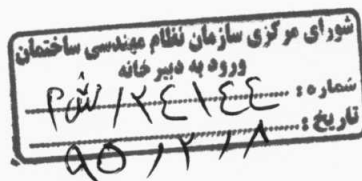 شورای مرکزی سازمان نظام مهندسی ساختمان
ورود به دبیرخانه
شماره: ۲۴۱۴۴/ش م
تاریخ: ۹۵/۲/۸